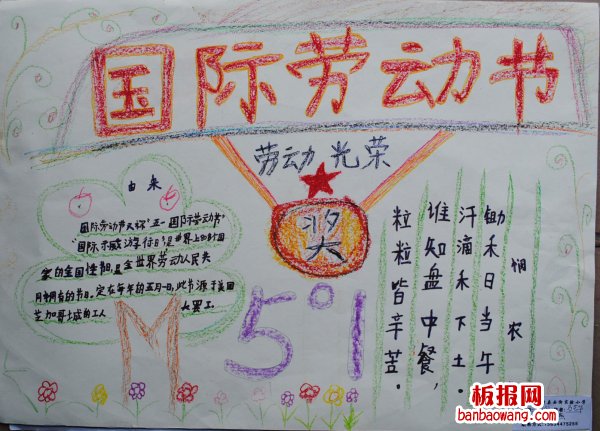 国际劳动节
劳动光荣
奖
由来
国际劳动节又称"五一国际劳动节"
"国际示威游行日"是世界上80多个国
家的全国性节日,是全世界劳动人民共
同拥有的节日。定在每年的五月一日。此节源于美国
芝加哥城的工人
大罢工
M
5°1
悯农
锄禾日当午
汗滴禾下土。
谁知盘中餐,
粒粒皆辛苦。
板报网
banbaowang.com